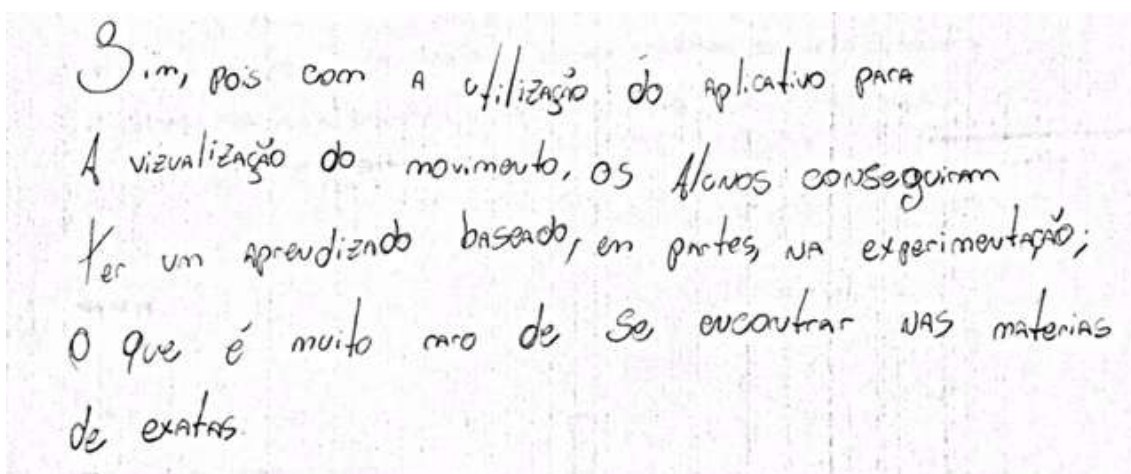 Sim, pois com A utilização do Aplicativo para
A vizualização do movimento, os Alunos conseguiram
ter um aprendizado baseado, em partes, na experimentação;
O que é muito raro de se encontrar nas materias
de exatas.